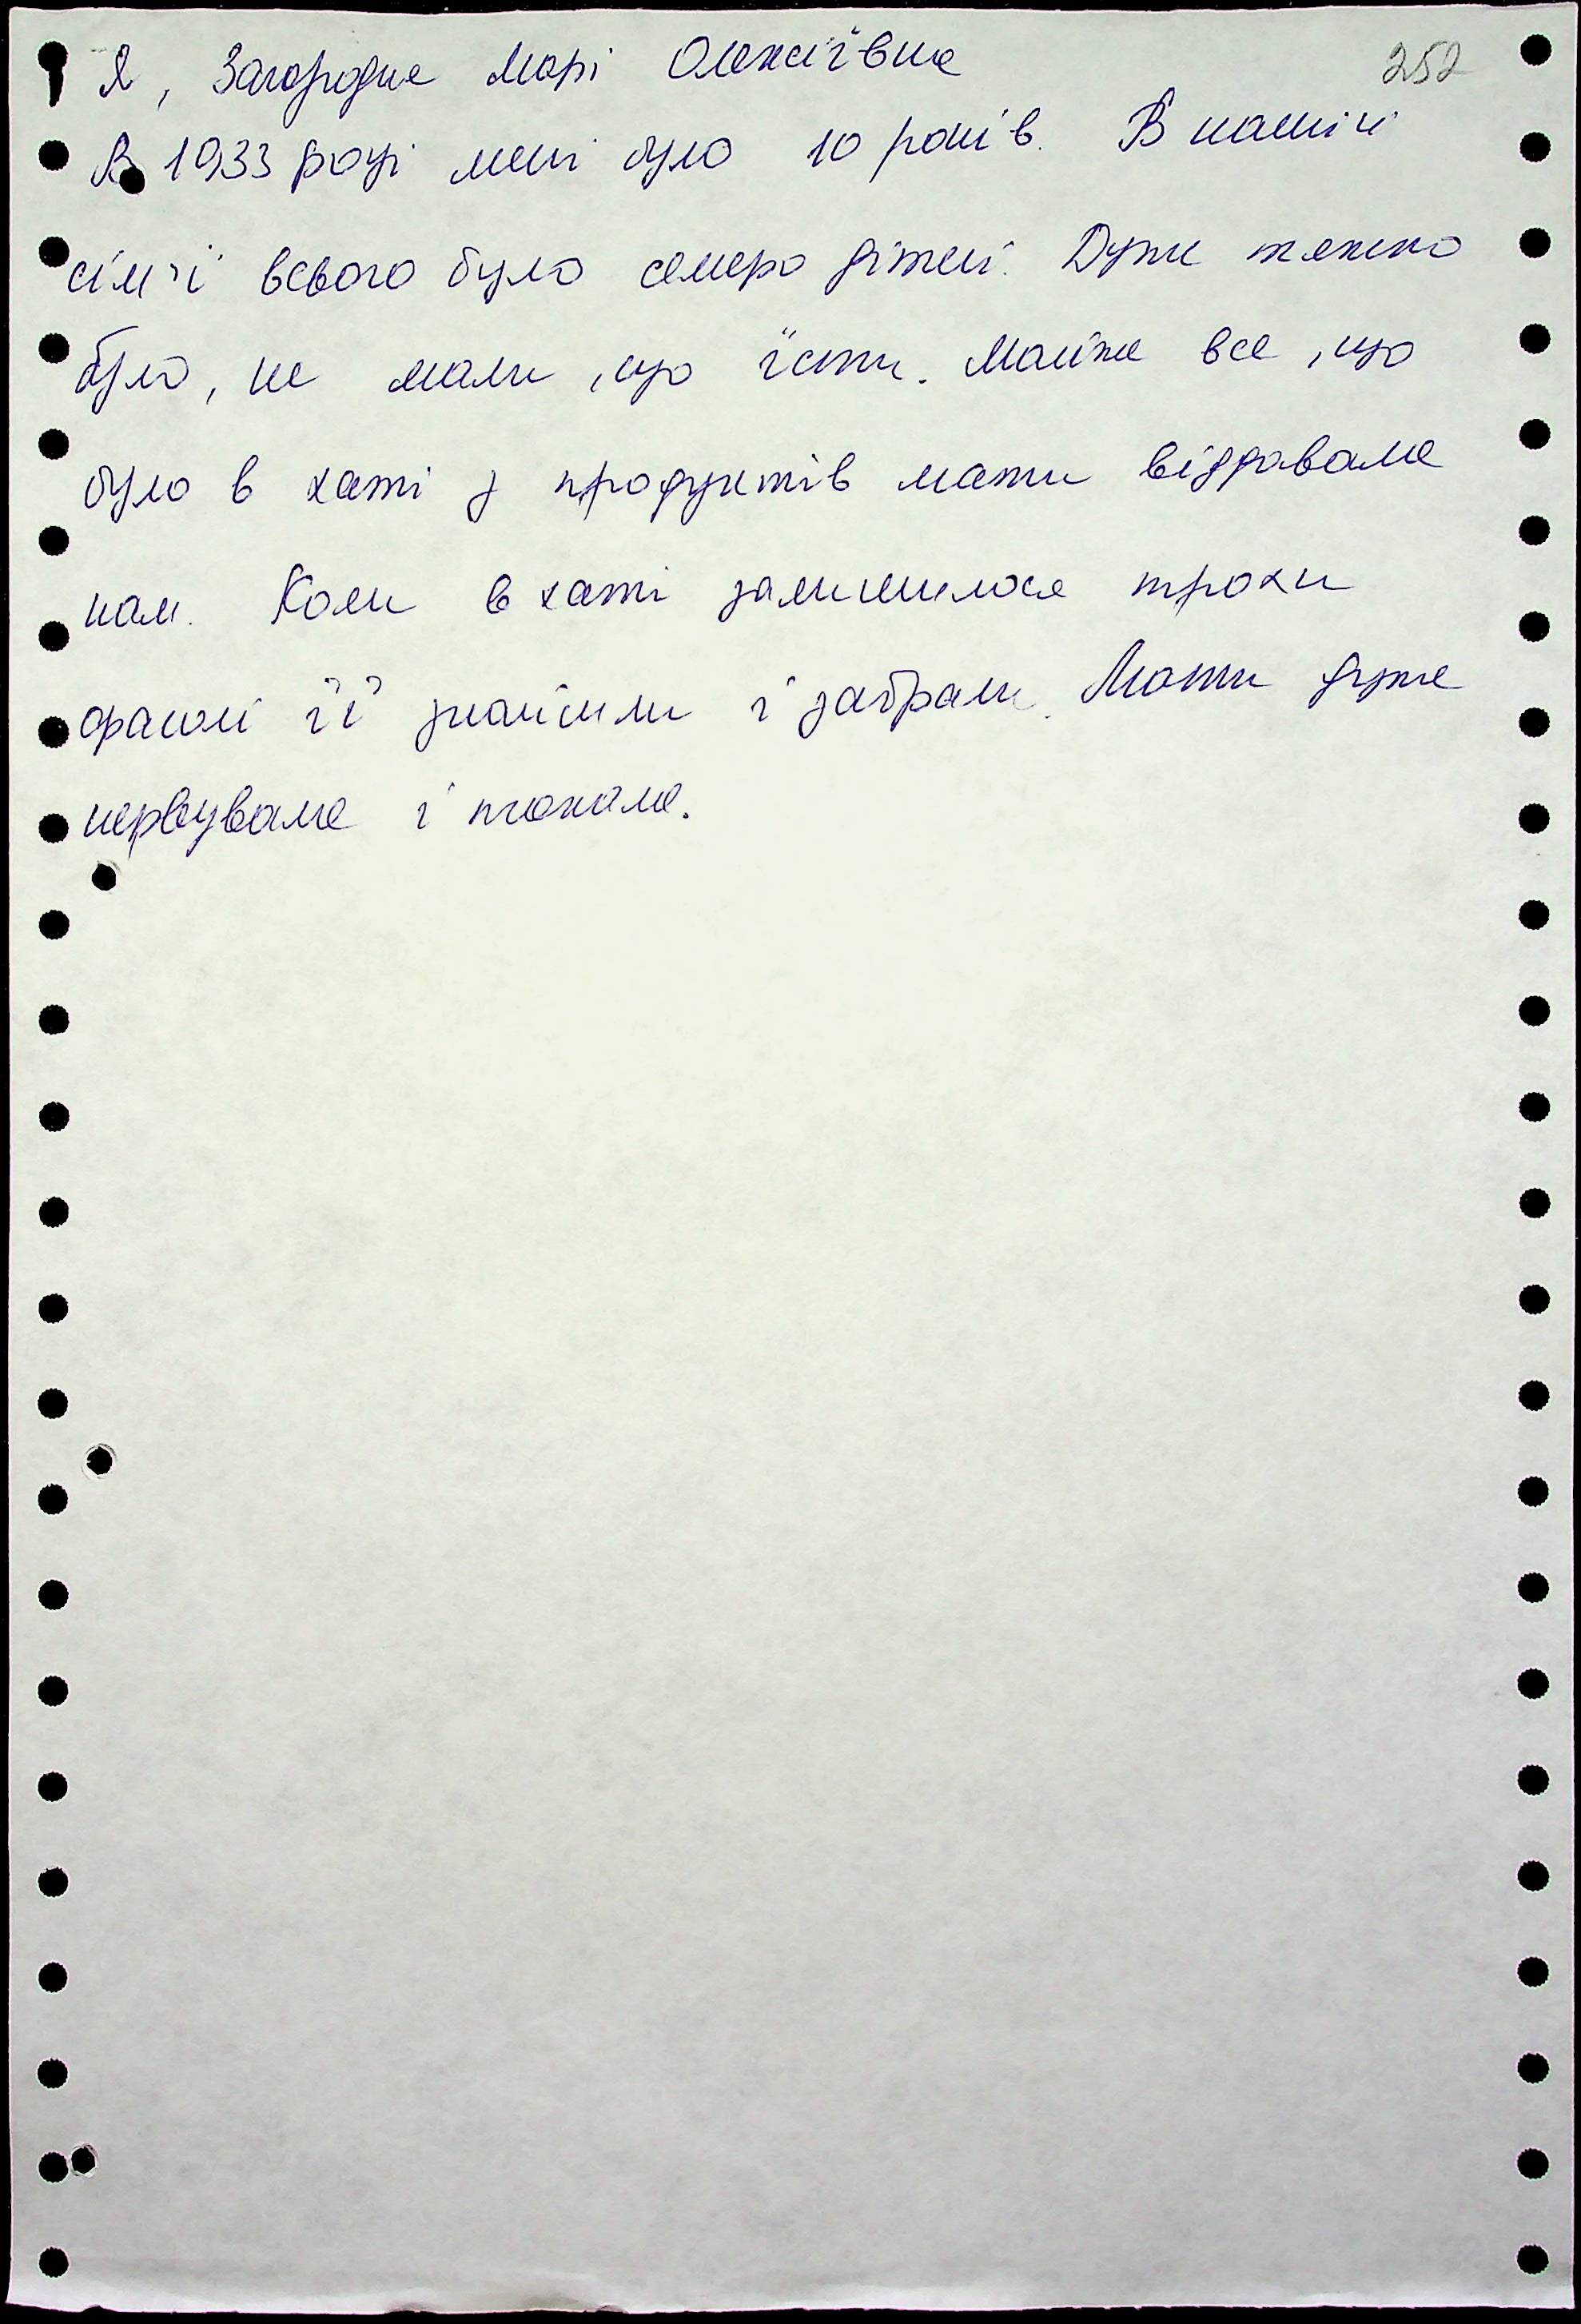 Я, Загородня Марі Олексіївна
252
В 1933 році мені було 10 років. В нашій
сім'ї всього було семеро дітей. Дуже тяжко
було, не мали, що їсти. Майже все, що
було в хаті з продуктів мати віддавала
нам. Коли в хаті залишилося трохи
фасолі її знайшли і забрали. Мати дуже
нервувала і плакала.